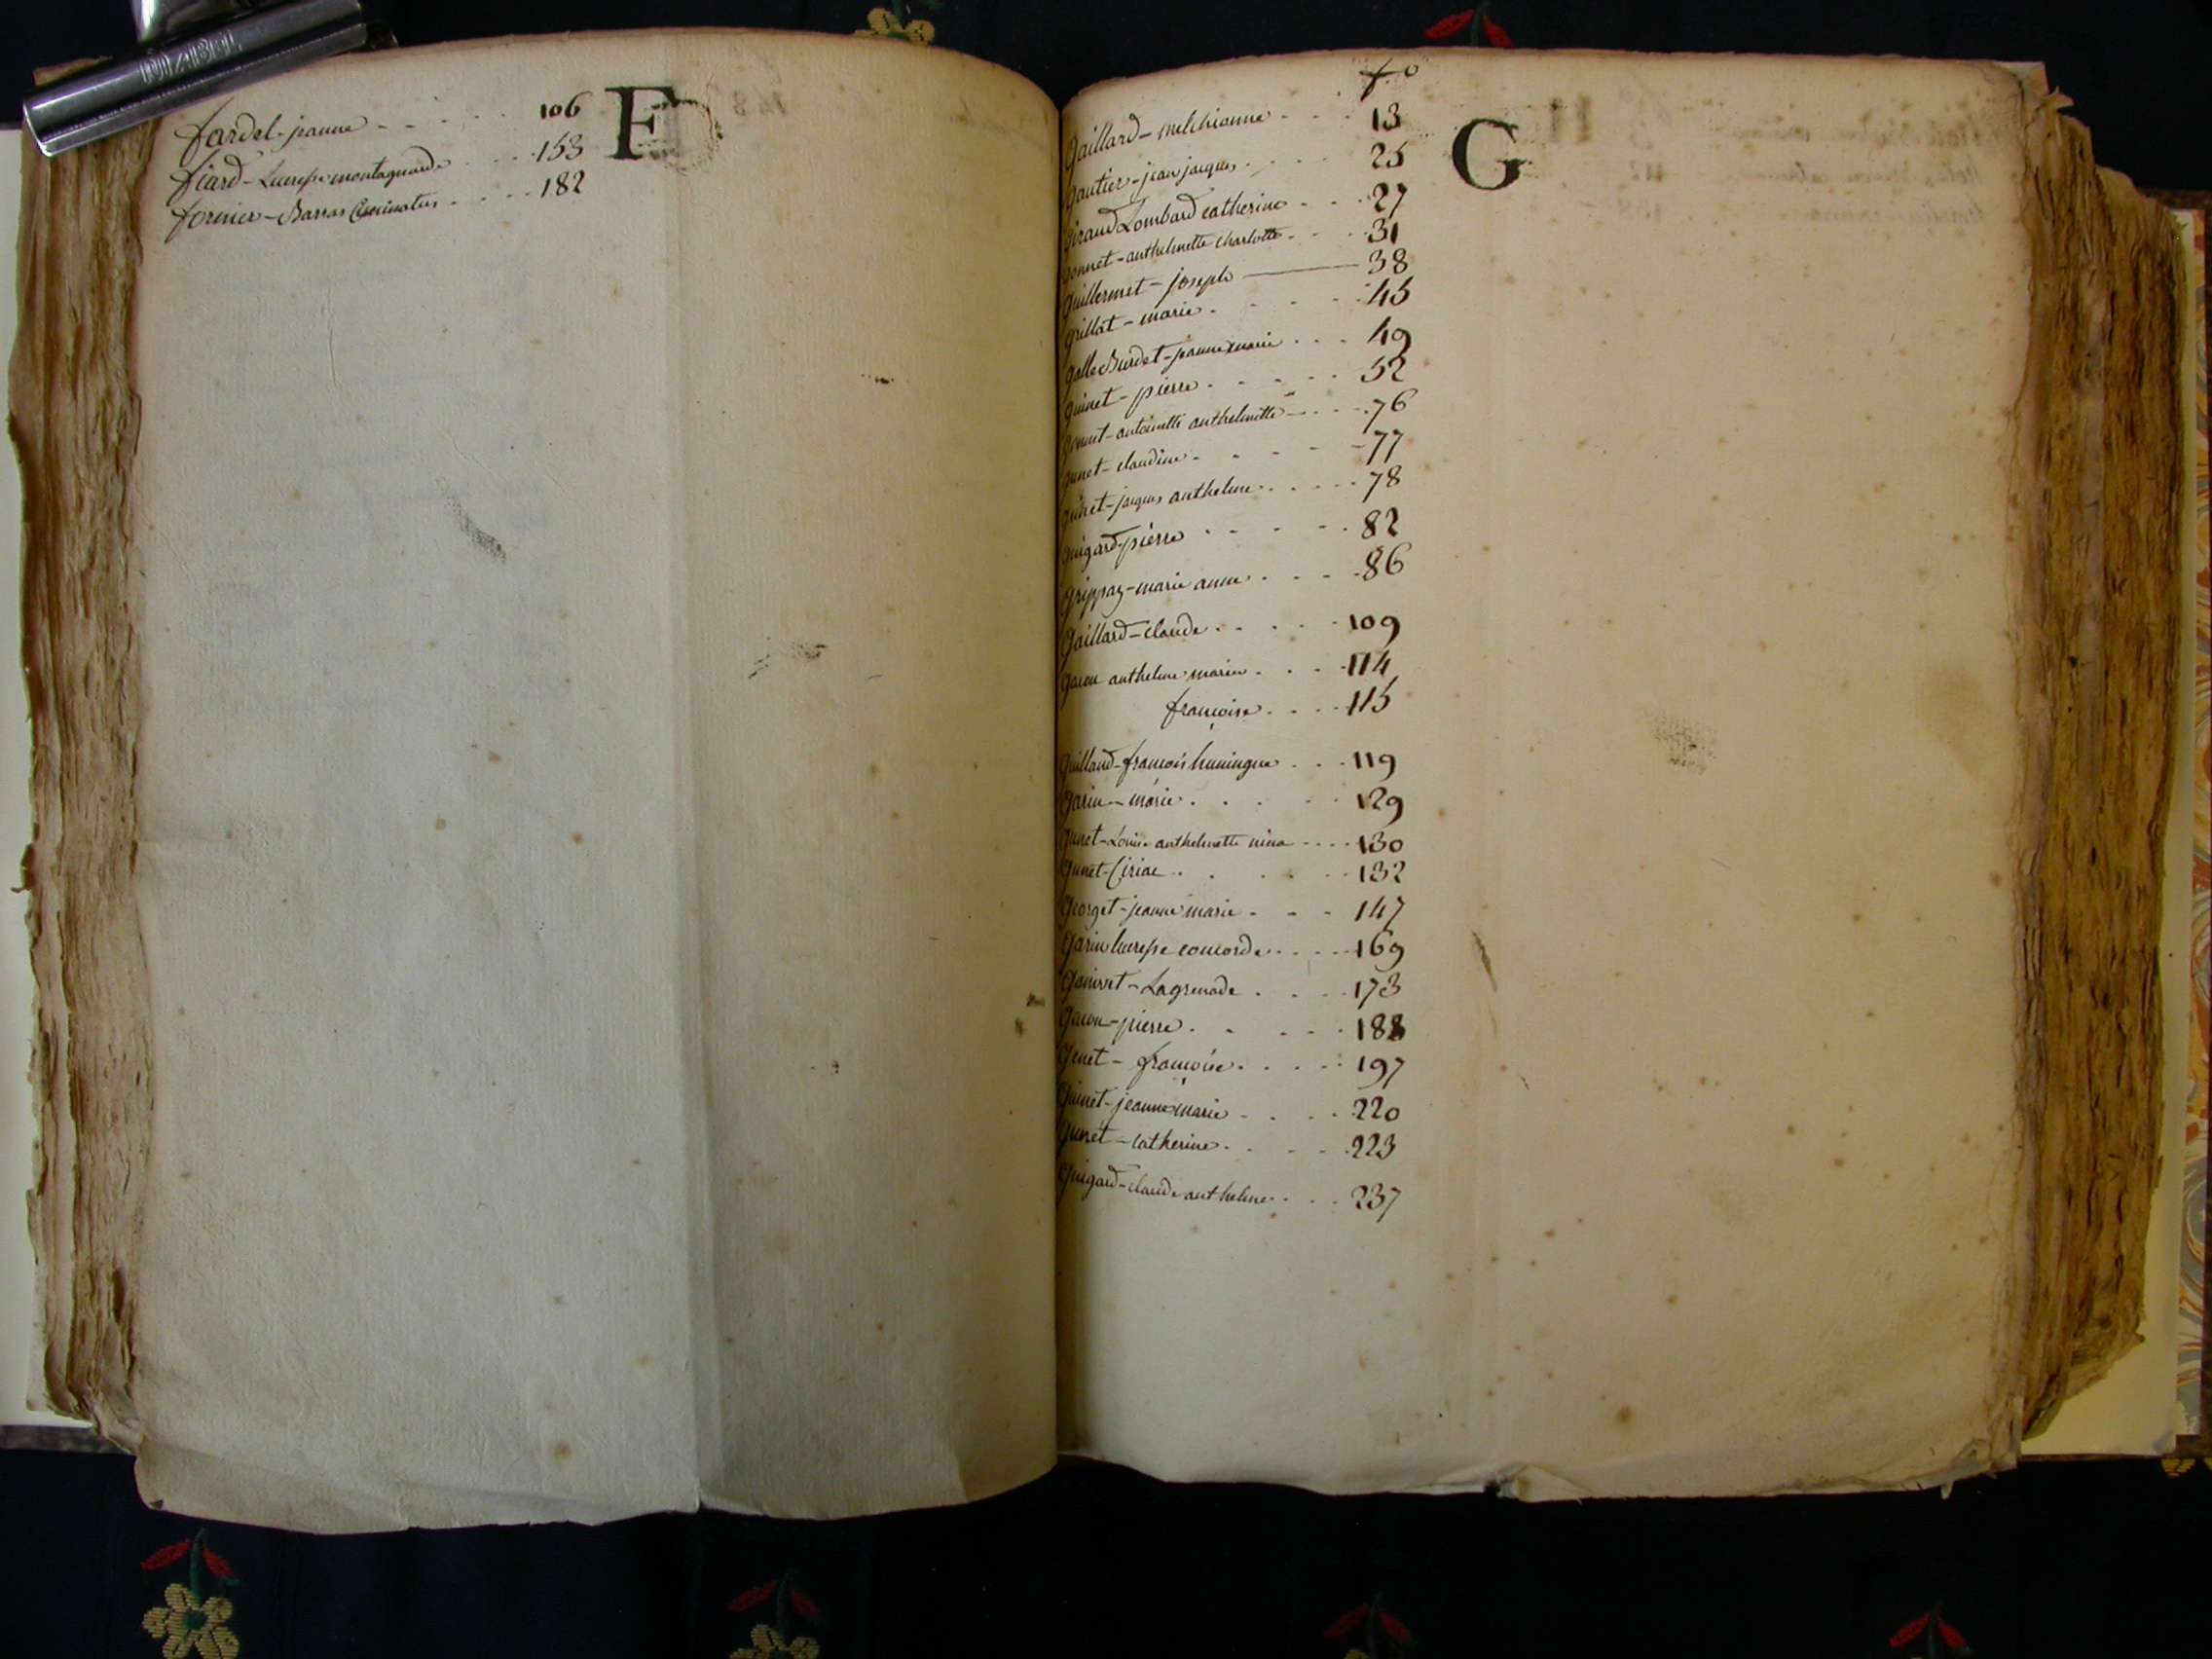 DIABEL
F
fardel - jeanne - - - - 106
fiard - Lucresse montagnarde - - - 153
fornier - Barras Cincinatus - - - - 182
G
f.o
Gaillard - melchionne - - - 13
Gautier - jean jaques - - - - 25
Giraud Lombard catherine - - - 27
Gonnet - anthelmette charlotte - - - 31
Guillermet - joseph - 38
Grillat - marie - - - - 45
Galle Burdet - jeanne marie - - - 49
Guinet - pierre - - - - - 52
antoinette anthelmette - - - 76
claudine - - - - - 77
jaques anthelme - - - - - 78
Guigard - pierre - - - - - 82
Grippay - marie anne - - - - 86
Gaillard - claude - - - - - 109
Gacon anthelme marie - - - 114
françoise - - - - 115
françois huningue - - - 119
Garin - marie - - - - - 129
Louise anthelmette nina - - - - 130
Ciriac - - - - - 132
Georget - jeanne marie - - - 147
Garin lucresse concorde - - - - 169
Lagrenade - - - - 173
Gacon - pierre - - - - - 188
Genet - françoise - - - - - 197
Guinet - jeanne marie - - - - 220
catherine - - - - - 223
Guigard - claude anthelme - - - 237